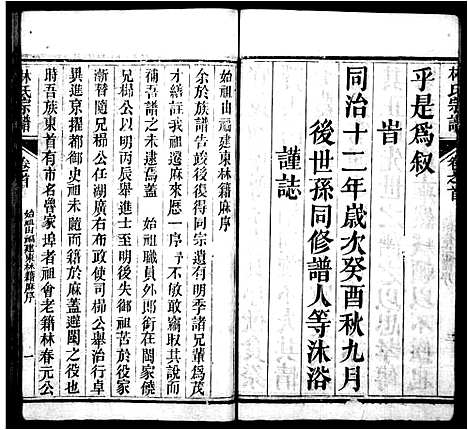 林氏宗譜
卷之首
乎是為叙
旹
同治十二年歲次癸酉秋九月
後世孫同修譜人等沐浴
謹誌
始祖由福建東林籍麻序
余於族譜告竣後復得同宗遺有明季諸兄輩為茂
才續註我祖遷麻來歷一序予不敢竄取其說而
補吾譜之未逮焉蓋 始祖職員外郎銜在閩家饒
兄楊公以明丙辰舉進士至明後失御祖苦於役家
漸替隨兄楊公任湖廣右布政使司楊公舉治行卓
異進京擢都御史祖未隨而籍於麻蓋避閩之役也
時吾族東首有市名曾家埠者祖會老籍林春元公
林氏宗譜
卷之首
始祖由福建東林籍麻序
一